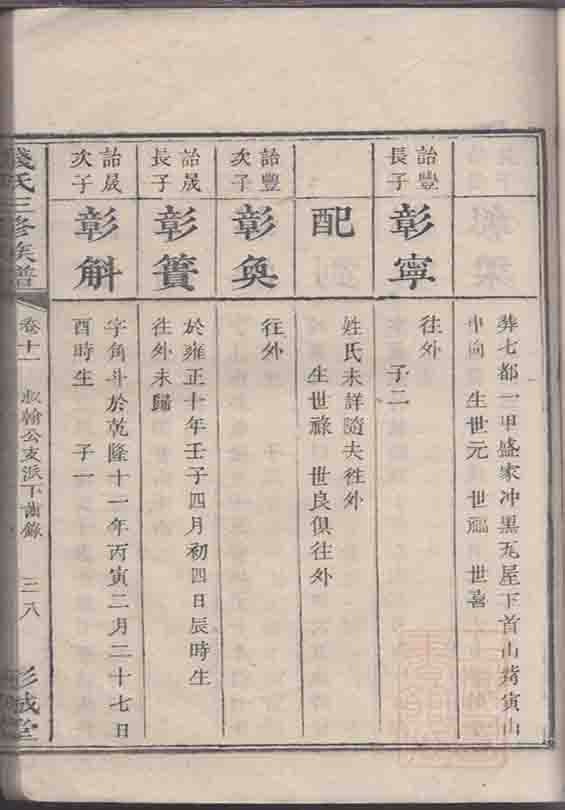 葬七都一甲盛家冲黑瓦屋下首山背寅山
申向　生世元　世福　世喜
詒豐
長子
彰寧
往外　子二
配
姓氏未詳隨夫往外
生世祿　世良俱往外
詒豐
次子
彰奐
往外
詒晟
長子
彰簣
於雍正十年壬子四月初四日辰時生
往外未歸
詒晟
次子
彰斛
字角斗於乾隆十一年丙寅二月二十七日
酉時生　子一
錢氏三修族譜
卷十一
叔翰公支派下齒錄
三八
彭城堂